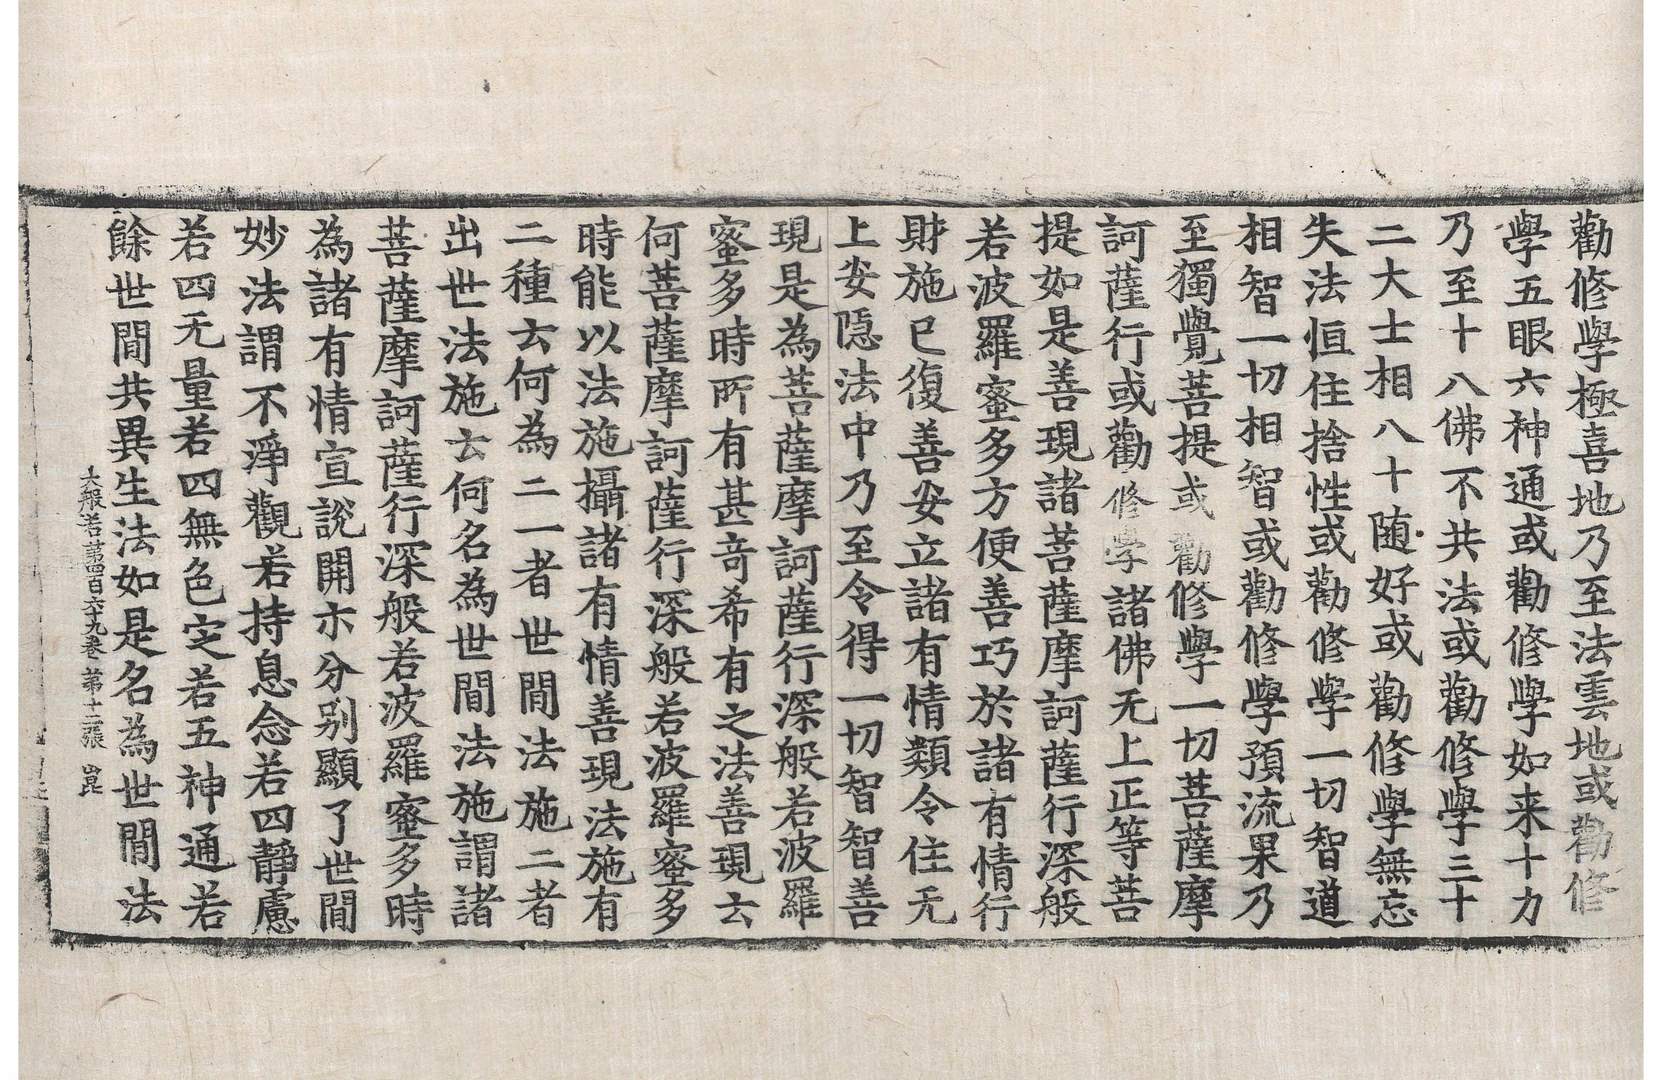 勸修學極喜地乃至法雲地或勸修
學五眼六神通或勸修學如来十力
乃至十八佛不共法或勸修學三十
二大士相八十随好或勸修學無忘
失法恒住捨性或勸修學一切智道
相智一切相智或勸修學預流果乃
至獨覺菩提或勸修學一切菩薩摩
訶薩行或勸修學諸佛无上正等菩
提如是善現諸菩薩摩訶薩行深般
若波羅蜜多方便善巧於諸有情行
財施已復善安立諸有情類令住无
上安隱法中乃至令得一切智智善
現是為菩薩摩訶薩行深般若波羅
蜜多時所有甚奇希有之法善現云
何菩薩摩訶薩行深般若波羅蜜多
時能以法施攝諸有情善現法施有
二種云何為二一者世間法施二者
出世法施云何名為世間法施謂諸
菩薩摩訶薩行深般若波羅蜜多時
為諸有情宣說開示分別顯了世間
妙法謂不淨觀若持息念若四靜慮
若四无量若四無色定若五神通若
餘世間共異生法如是名為世間法
大般若第四百六十九卷 第十二張 崑